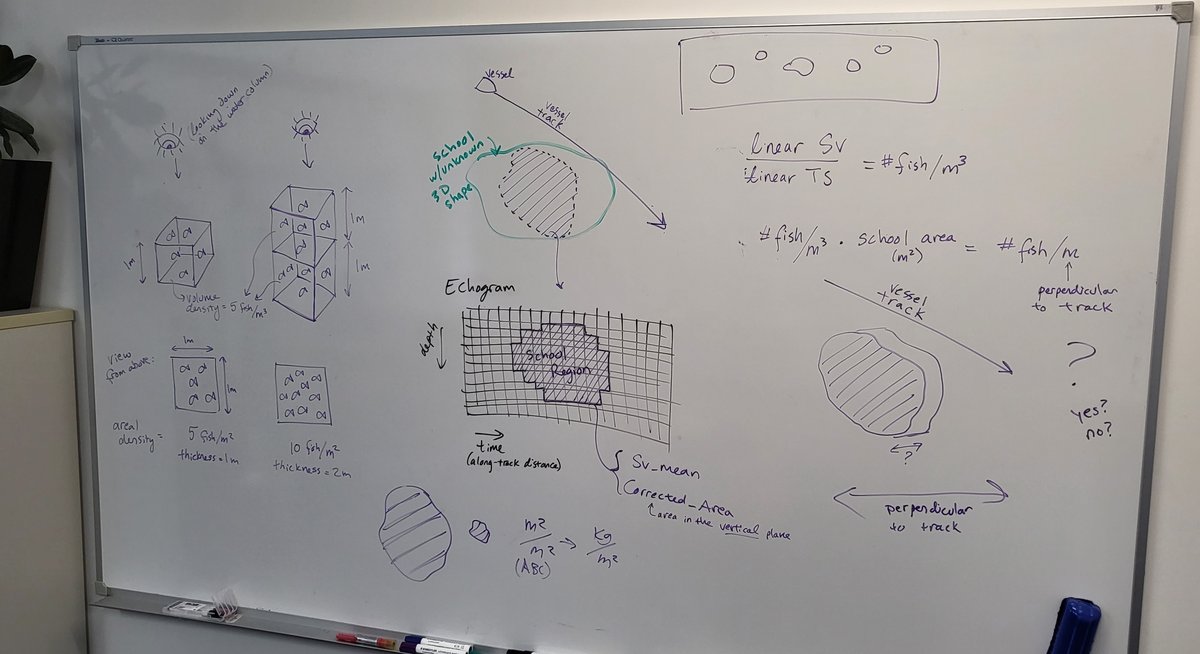 (looking down
on the water column)
1m
1m
1m
volume
density = 5 fish/m³
view
from above:
1m
1m
areal
density =
5 fish/m²
thickness = 1m
10 fish/m²
thickness = 2m
vessel
vessel
track
school
w/unknown
3D
shape
Echogram
depth
School
Region
time
(along-track distance)
Sv_mean
Corrected_Area
area in the vertical plane
m²
m²
(ABC)
→
kg
m²
linear Sv
linear TS
= #fish/m³
#fish/m³ · school area = #fish/m
(m²)
perpendicular
to track
?
yes?
no?
vessel
track
?
perpendicular
to track